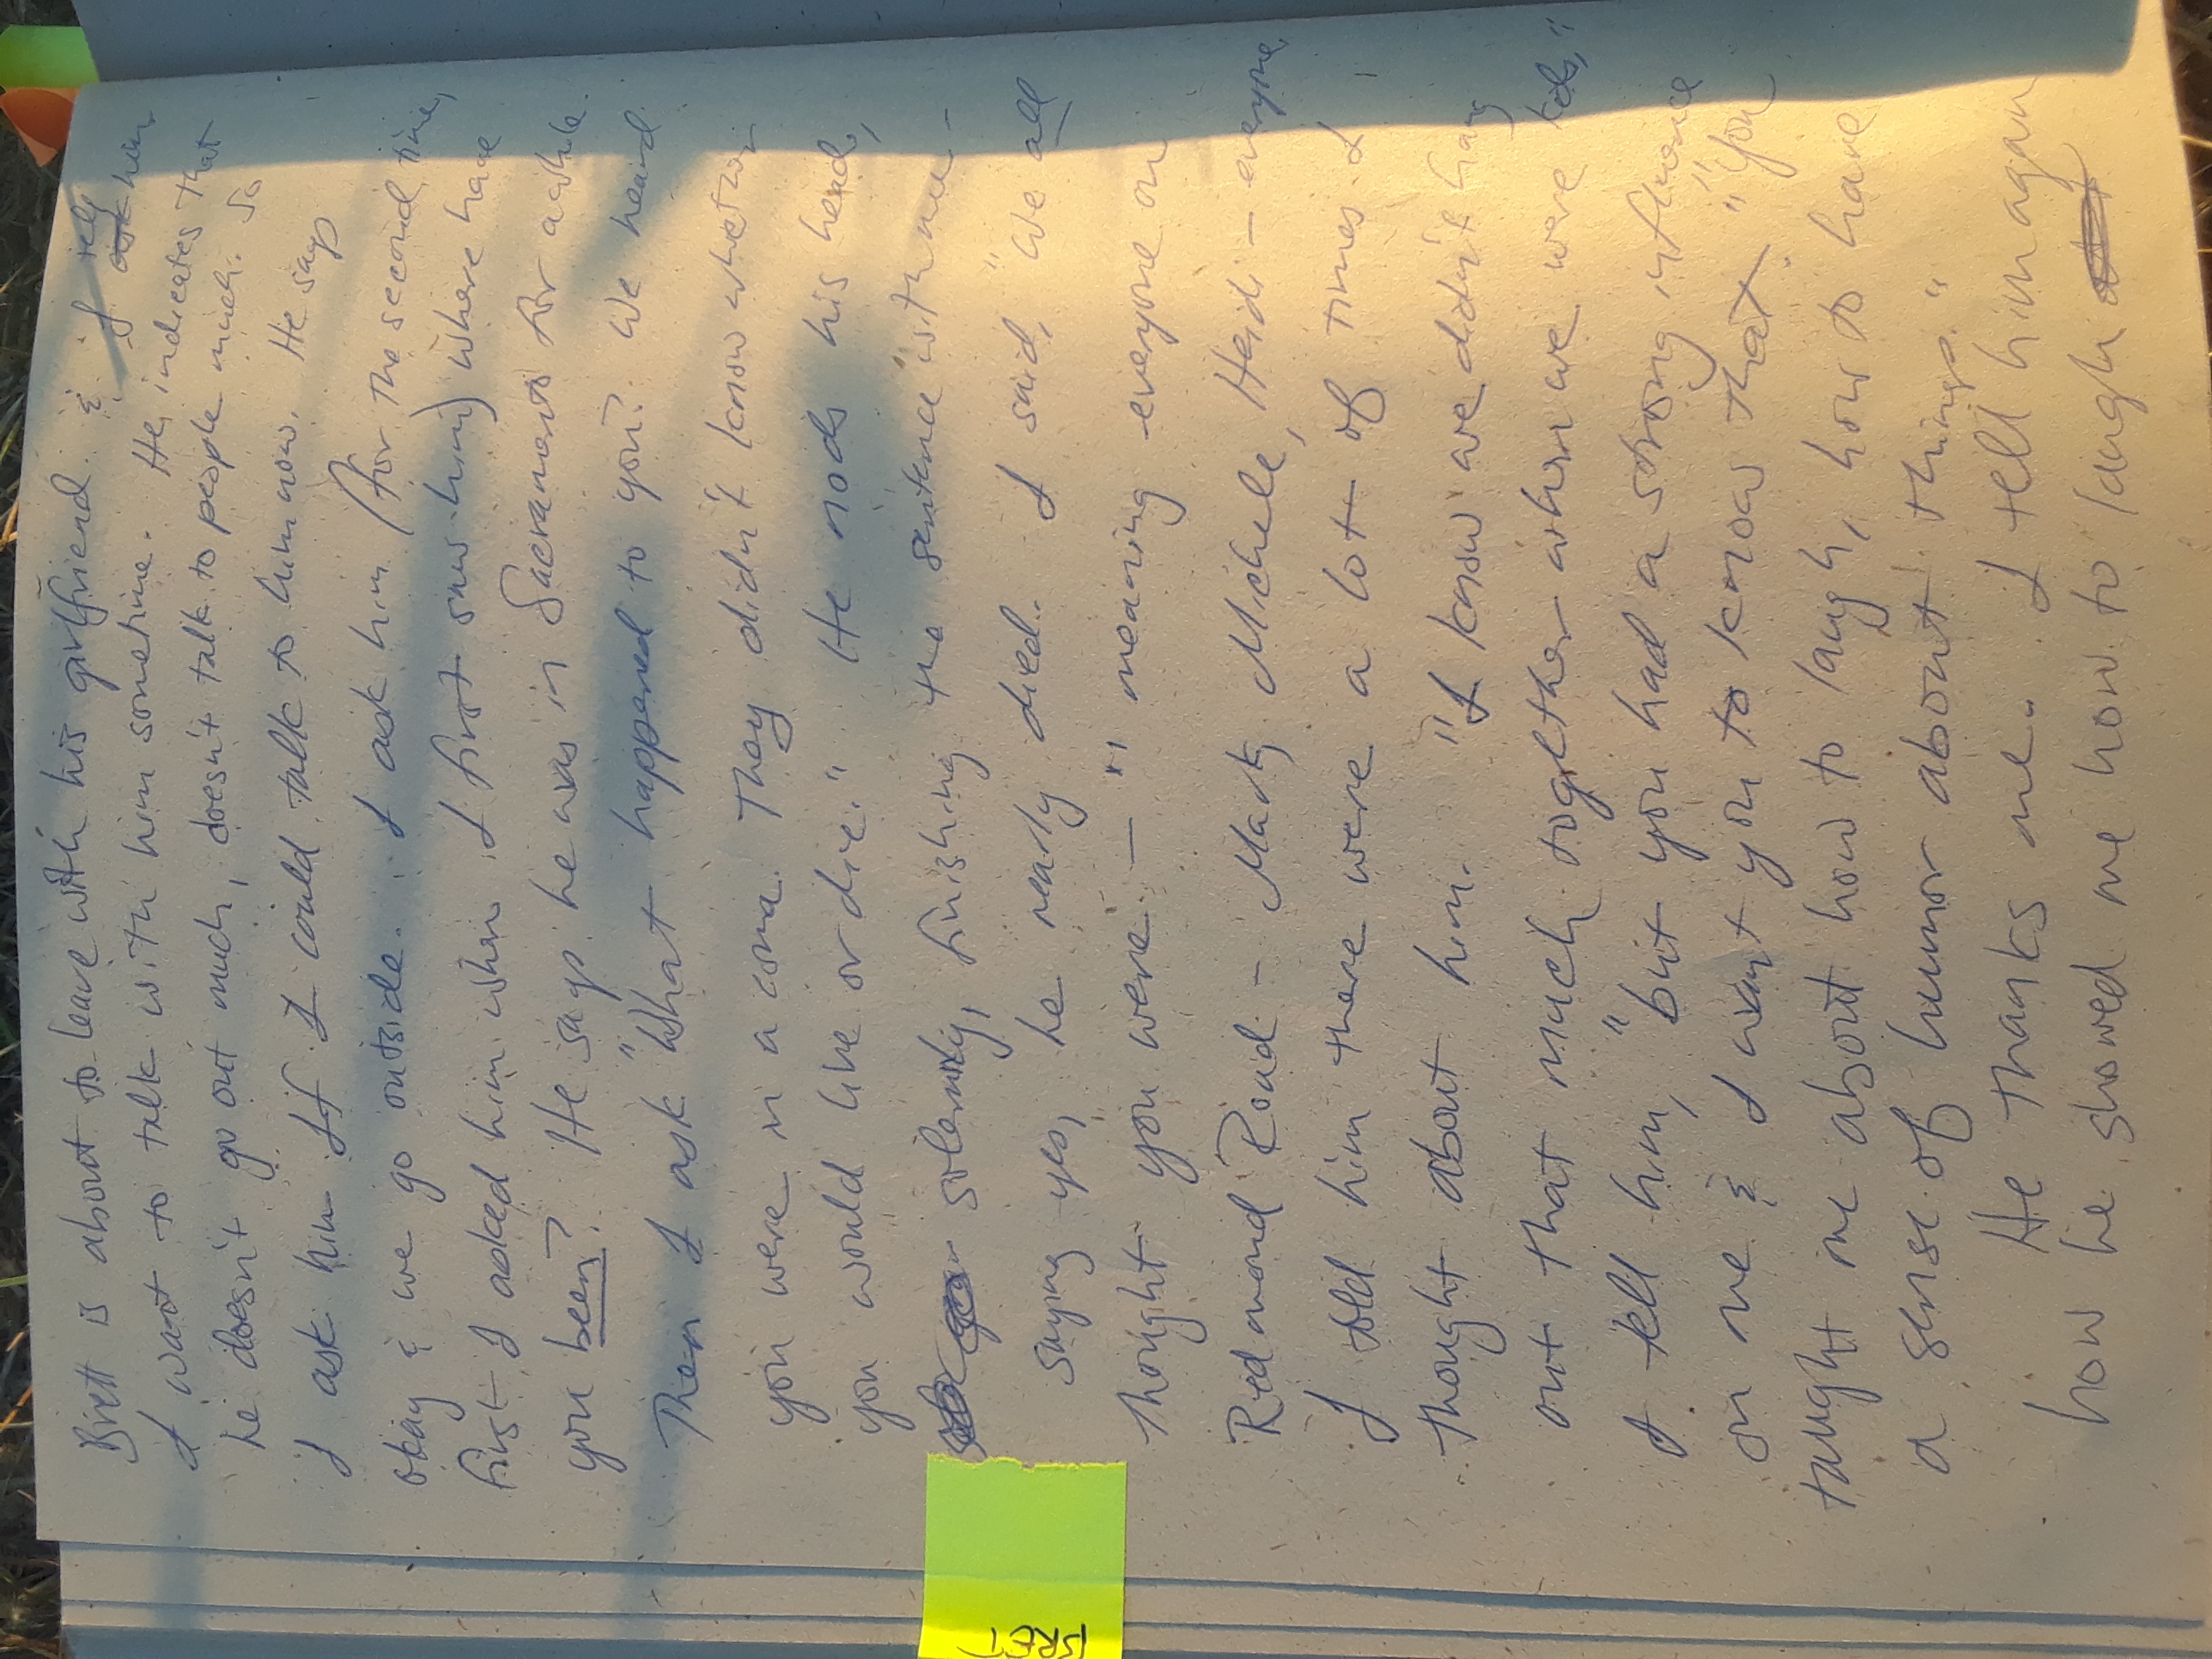 Brett is about to leave with his girlfriend & I tell him
I want to talk with him sometime. He indicates that
he doesn't go out much, doesn't talk to people much. So
I ask him if I could talk to him now. He says
okay & we go outside. I ask him (for the second time,
first I asked him when I first saw him) where have
you been? He says he was in Sacramento for awhile.
Then I ask "What happened to you? We heard
you were in a coma. They didn't know whether
you would live or die." He nods his head,
solemnly, finishing the sentence with me -
saying yes, he nearly died. I said, "We all
thought you were —", meaning everyone on
Redmond Road - Mark, Michele, Heidi - everyone.
I told him there were a lot of times I
thought about him. "I know we didn't hang
out that much together when we were kids,"
I tell him, "but you had a strong influence
on me & I want you to know that." "You
taught me about how to laugh, how to have
a sense of humor about things."
He thanks me. I tell him again
how he showed me how to laugh
BRET